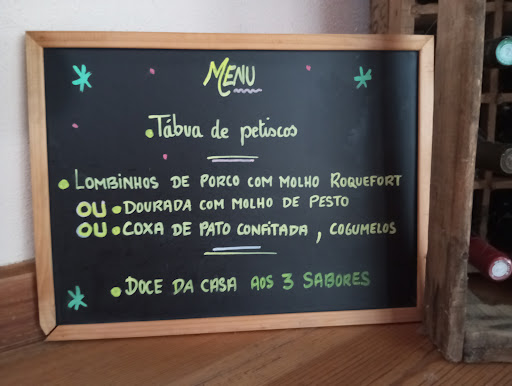 MENU
• Tábua de petiscos
• LOMBINHOS DE PORCO COM MOLHO ROQUEFORT
OU • DOURADA COM MOLHO DE PESTO
OU • COXA DE PATO CONFITADA, COGUMELOS
• DOCE DA CASA AOS 3 SABORES